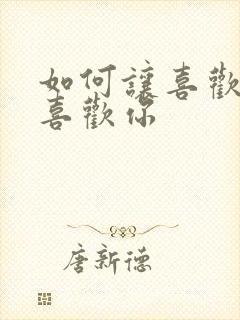 如何讓喜歡
喜歡你
唐新德